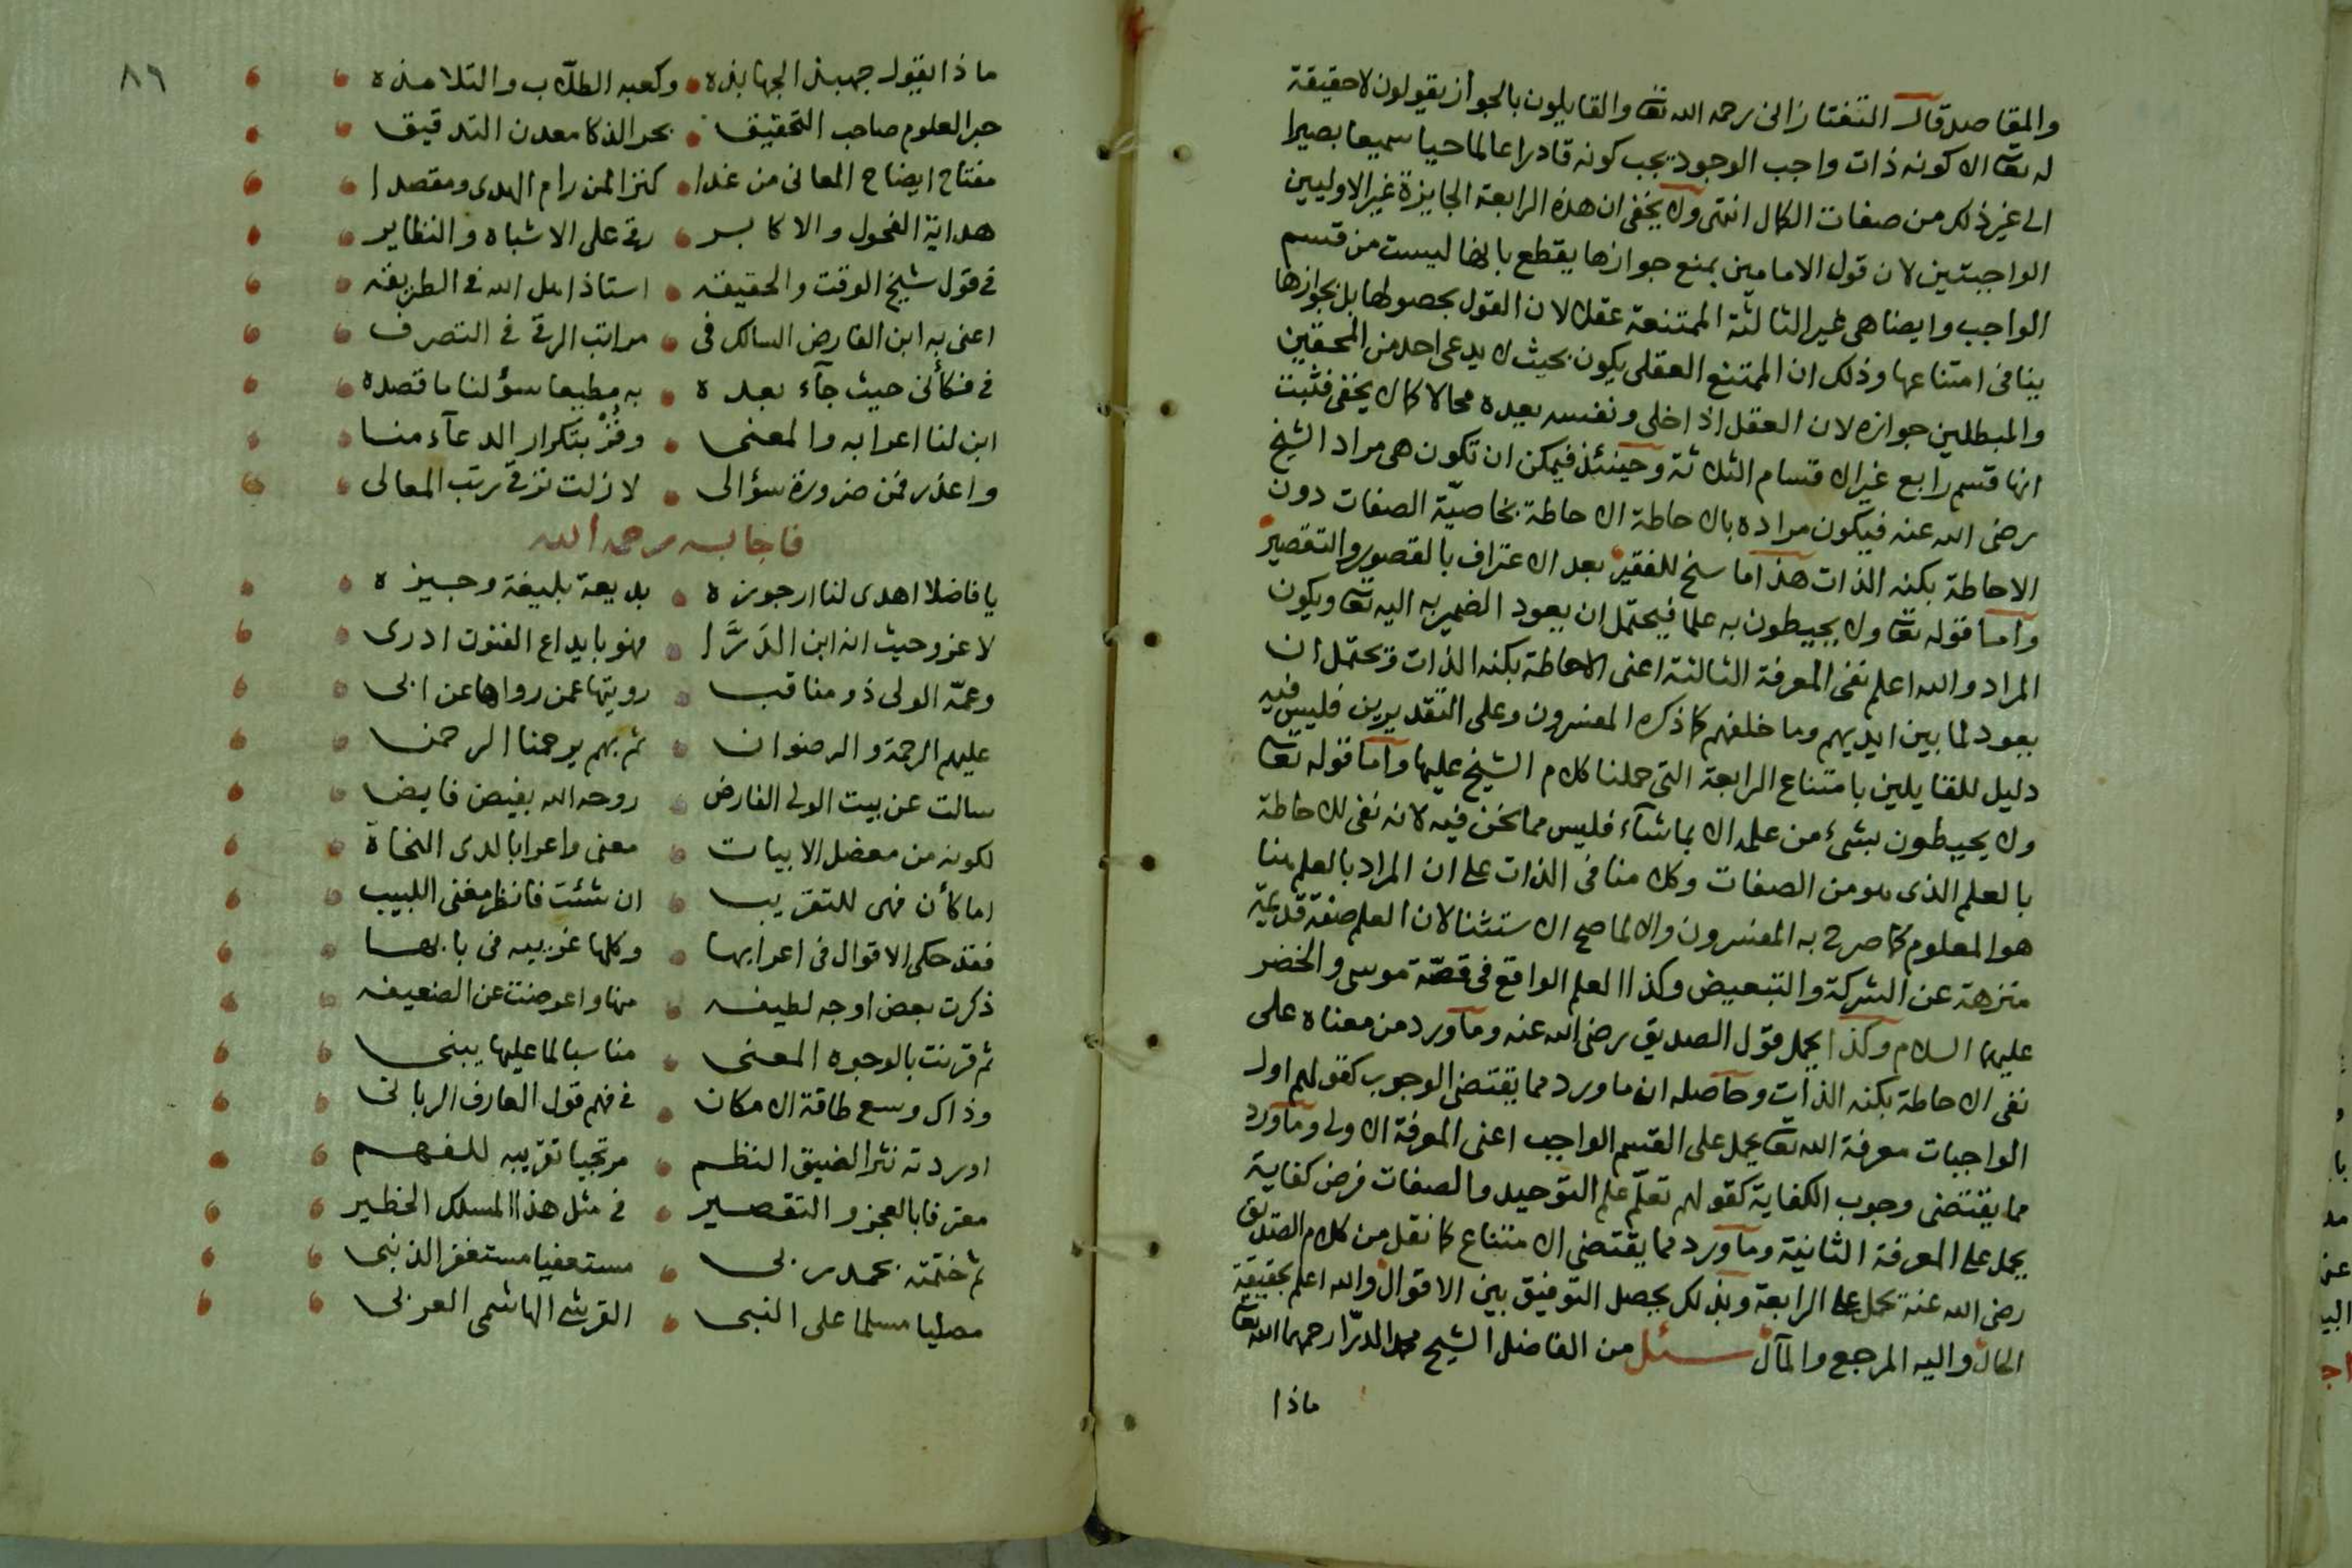 والمقاصد قال التفتازانى رحمه الله تعا والقايلون بالجواز يقولون لا حقيقة
له تعا الا كونه ذات واجب الوجود يجب كونه قادرا عالما حيا سميعا بصيرا
الى غير ذلك من صفات الكمال انتهى ولا يخفى ان هذه الرابعة الجايزة غير الاوليين
الواجبتين لان قول الامامين بمنع جوازها يقطع بانها ليست من قسم
الواجب وايضا هى غير الثالثة الممتنعة عقلا لان القول بحصولها بل بجوازها
ينافى امتناعها وذلك ان الممتنع العقلى يكون بحيث لا يدعى احد من المحققين
والمبطلين جوازه لان العقل اذا خلى ونفسه يعده محالا كما لا يخفى فثبت
انها قسم رابع غير الاقسام الثلاثة وحينئذ فيمكن ان تكون هى مراد الشيخ
رضى الله عنه فيكون مراده بالاحاطة الاحاطة بخاصيّة الصفات دون
الاحاطة بكنه الذات هذا ما سنح للفقير بعد الاعتراف بالقصور والتقصير
وأما قوله تعا ولا يحيطون به علما فيحتمل ان يعود الضمير به اليه تعا ويكون
المراد والله اعلم نفى المعرفة الثالثة اعنى الاحاطة بكنه الذات وتحتمل ان
يعود لما بين ايديهم وما خلفهم كما ذكره المفسرون وعلى التقديرين فليس فيه
دليل للقايلين بامتناع الرابعة التى حملنا كلام الشيخ عليها وأما قوله تعا
ولا يحيطون بشىء من علمه الا بما شآء فليس مما نحن فيه لانه نفى للاحاطة
بالعلم الذى هو من الصفات وكلامنا فى الذات على ان المراد بالعلم هنا
هو المعلوم كما صرح به المفسرون والا لما صح الاستثنا لان العلم صفة قديمة
منزهة عن الشركة والتبعيض وكذا العلم الواقع فى قصّة موسى والخضر
عليهما السلام وكذا يحمل قول الصديق رضى الله عنه وما ورد من معناه على
نفى الاحاطة بكنه الذات وحاصله ان ما ورد مما يقتضى الوجوب كقولهم اول
الواجبات معرفة الله تعا يحمل على القسم الواجب اعنى المعرفة الاولى وما ورد
مما يقتضى وجوب الكفاية كقولهم تعلّم علم التوحيد والصفات فرض كفاية
يحمل على المعرفة الثانية وما ورد مما يقتضى الامتناع كما نقل من كلام الصديق
رضى الله عنه يحمل على الرابعة وبذلك يحصل التوفيق بين الاقوال والله اعلم بحقيقة
الحال واليه المرجع والمآل سئل من الفاضل الشيخ محمد الدرّا رحمهما الله تعا
ماذا
٨٦
ماذا يقول جهبذ الجهابذه وكعبه الطلاب والتلامذه
حبر العلوم صاحب التحقيق بحر الذكا معدن التدقيق
مفتاح ايضاح المعانى من غدا كنزا لمن رام الهدى ومقصدا
هداية الفحول والاكابر رقى على الاشباه والنظاير
فى قول شيخ الوقت والحقيقه استاذ اهل الله فى الطريقه
اعنى به ابن الفارض السالك فى مراتب الرقى فى التصرف
فى فكأنى حيث جآء بعده به مطيعا سؤلنا ما قصده
ابن لنا اعرابه والمعنى وفُزْ بتكرار الدعآء منا
واعذر فمن ضرورة سؤالى لا زلت ترقى رتب المعالى
فاجابه رحمه الله
يا فاضلا اهدى لنا ارجوزه بديعة بليغة وجيزه
لا غزو حيث انه ابن الدَرَّا فهو بابداع الفنون ادرى
وعمّه الولى ذو مناقب رويتها عمن رواها عن ابى
عليهم الرحمة والرضوان ثم بهم يرحمنا الرحمن
سالت عن بيت الولى الفارض روحه الله بفيض فايض
لكونه من معضل الابيات معنى واعرابا لدى النحاة
اما كأن فهى للتقريب ان شئت فانظر مغنى اللبيب
فقد حكى الاقوال فى اعرابها وكلها غريبه فى بابها
ذكرت بعض اوجه لطيفه منها واعرضت عن الضعيفه
ثم قرنت بالوجوه المعنى مناسبا لما عليها يبنى
وذاك وسع طاقة الامكان فى فهم قول العارف الربانى
اوردته نثرا لضيق النظم مرتجيا تقريبه للفهم
معترفا بالعجز والتقصير فى مثل هذا المسلك الخطير
ثم ختمته بحمد ربى مستعفيا مستغفرا لذنبى
مصليا مسلما على النبى القرشى الهاشمى العربى